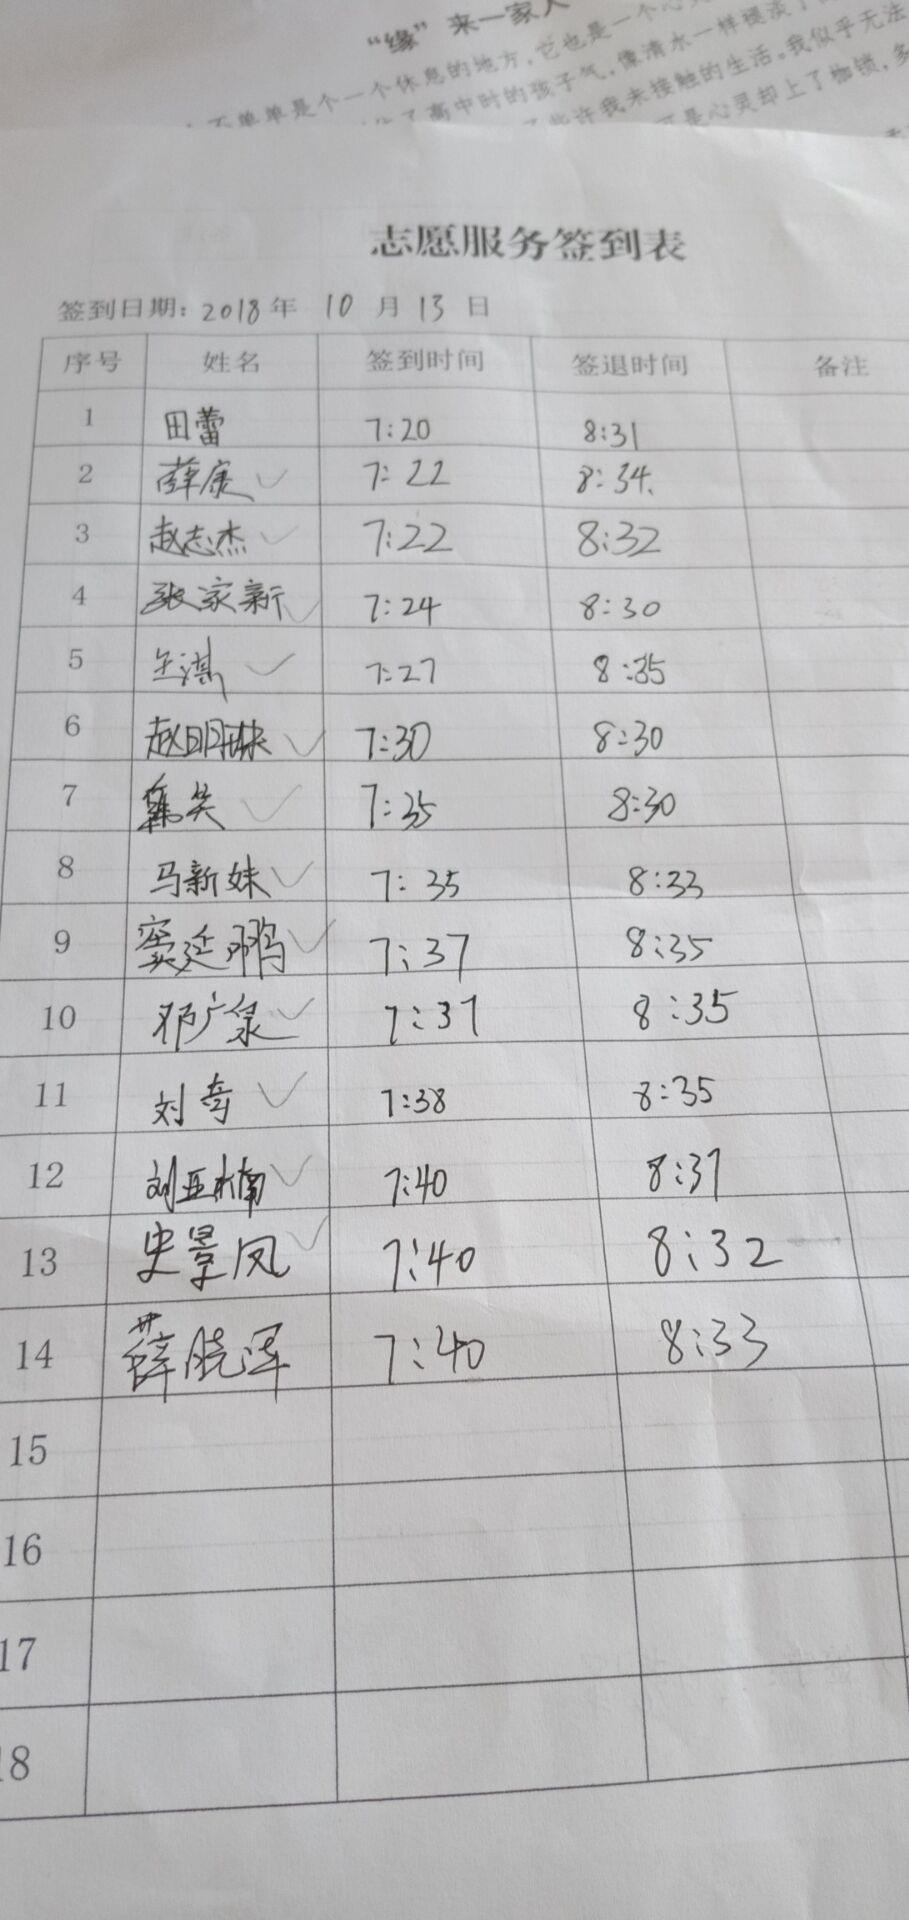 “缘”来一家人
不单单是个一个休息的地方，它也是一个心
了高中时的孩子气，像清水一样褪淡了
些许我未接触的生活。我似乎无法
可是心灵却上了枷锁，多
志愿服务签到表
签到日期：2018年 10 月 13 日
序号 姓名 签到时间 签退时间 备注
1 田蕾 7:20 8:31
2 薛康 7:22 8:34.
3 赵志杰 7:22 8:32
4 张家新 7:24 8:30
5 7:27 8:35
6 赵明琪 7:30 8:30
7 7:35 8:30
8 马新妹 7:35 8:33
9 窦延鹏 7:37 8:35
10 邓广泉 7:37 8:35
11 刘奇 7:38 8:35
12 刘亚楠 7:40 8:31
13 史景凤 7:40 8:32
14 薛晓泽 7:40 8:33
15
16
17
18